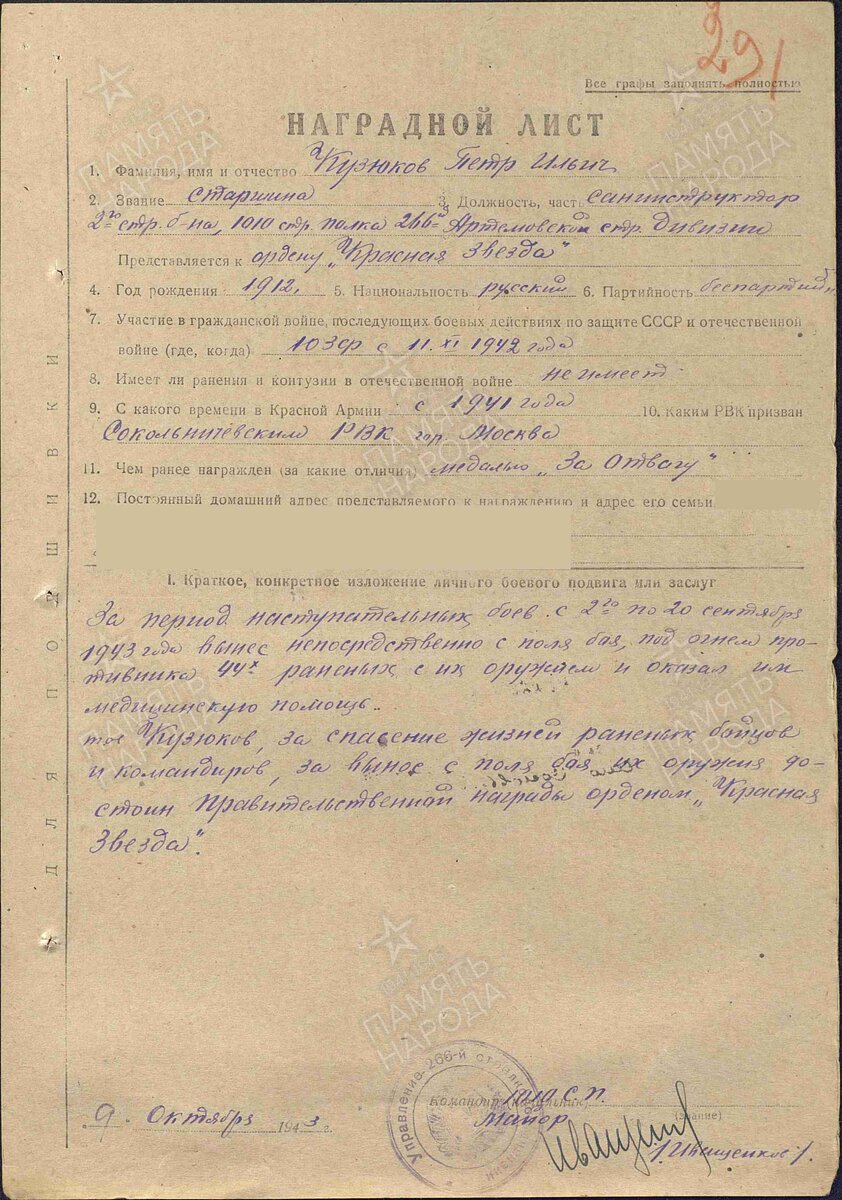 291
Все графы заполнять полностью
НАГРАДНОЙ ЛИСТ
1. Фамилия, имя и отчество Кузюков Петр Ильич
2. Звание старшина 3. Должность, часть санинструктор
2го стр. б-на, 1010 стр. полка 266й Артемовской стр. Дивизии
Представляется к ордену „Красная Звезда"
4. Год рождения 1912. 5. Национальность русский 6. Партийность беспартийн.
7. Участие в гражданской войне, последующих боевых действиях по защите СССР и отечественной
войне (где, когда) ЮЗФ с 11.XI 1942 года
8. Имеет ли ранения и контузии в отечественной войне не имеет
9. С какого времени в Красной Армии с 1941 года 10. Каким РВК призван
Сокольническим РВК гор. Москва
11. Чем ранее награжден (за какие отличия) медалью „За Отвагу"
12. Постоянный домашний адрес представляемого к награждению и адрес его семьи
I. Краткое, конкретное изложение личного боевого подвига или заслуг
За период наступательных боев с 2го по 20 сентября
1943 года вынес непосредственно с поля боя, под огнем про-
тивника 44х раненых с их оружием и оказал им
медицинскую помощь.
тов Кузюков, за спасение жизней раненых бойцов
и командиров, за вынос с поля боя их оружия до-
стоин Правительственной награды орденом „Красная
Звезда".
ДЛЯ ПОДШИВКИ
Командир (начальник) 1010 С.П.
Майор (звание)
9. Октября 1943 г.
/Иващенков/.
Управление 266-й стрелковой дивизии
ПАМЯТЬ НАРОДА